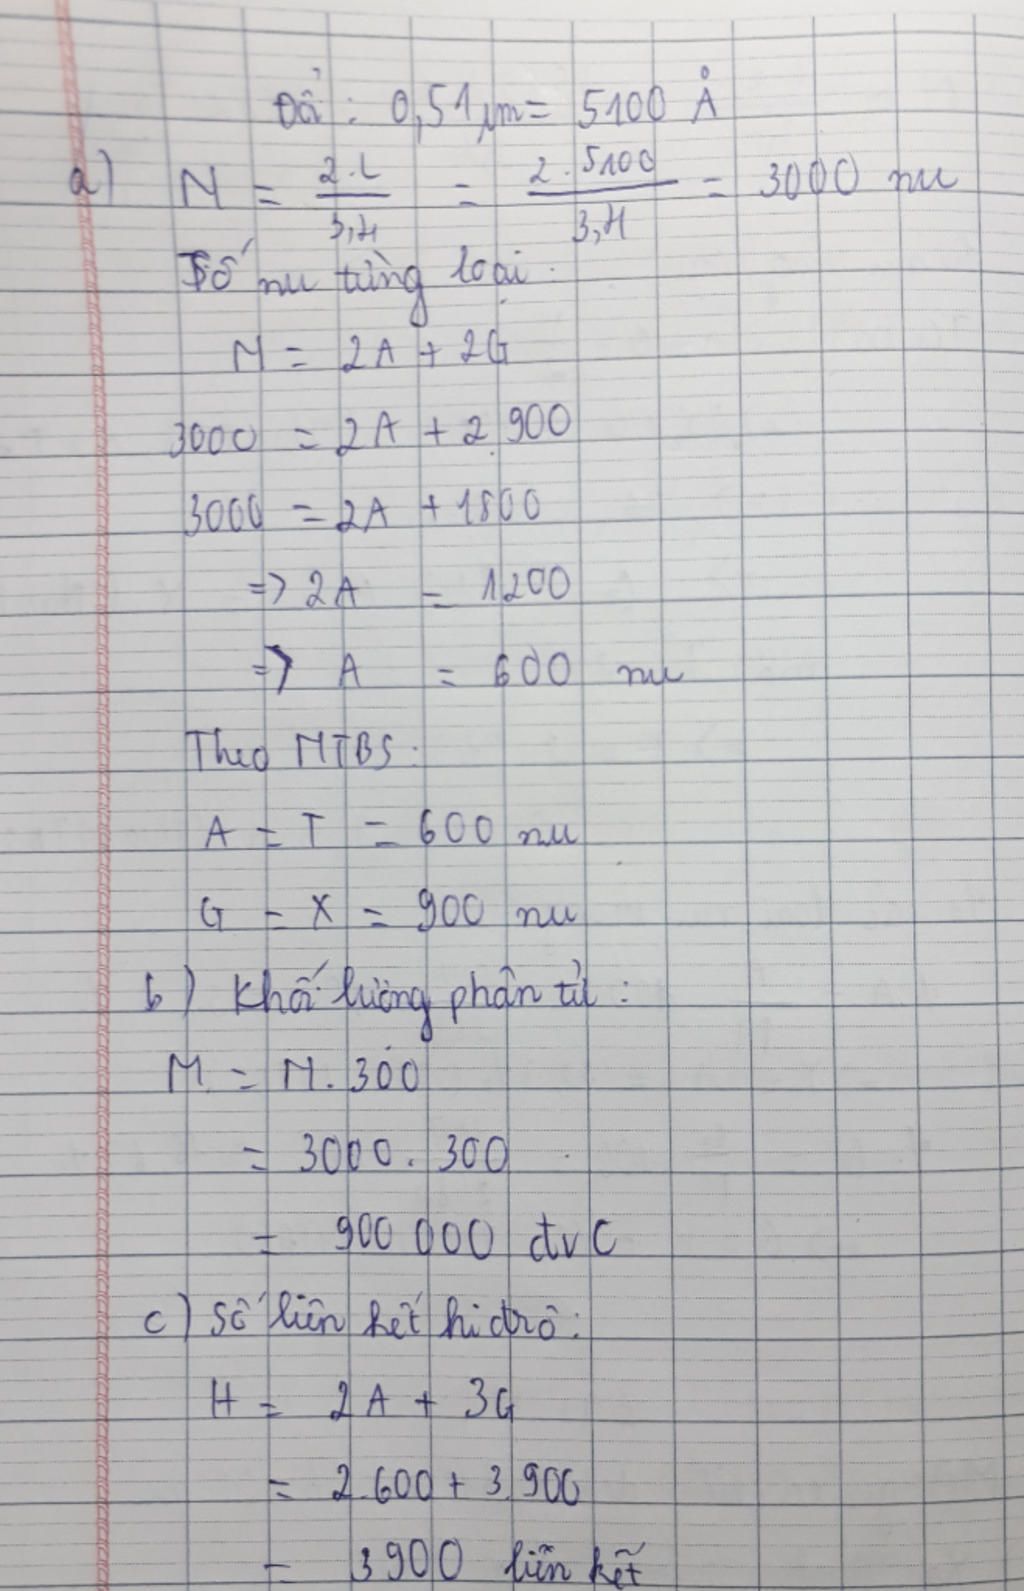 Đổi : 0,51 µm = 5100 Å
a) N = 2.L / 3,4 = 2.5100 / 3,4 = 3000 nu
Số nu từng loại :
N = 2A + 2G
3000 = 2A + 2.900
3000 = 2A + 1800
=> 2A = 1200
=> A = 600 nu
Theo NTBS :
A = T = 600 nu
G = X = 900 nu
b) Khối lượng phân tử :
M = N . 300
= 3000 . 300
= 900 000 đvC
c) Số liên kết hiđrô :
H = 2A + 3G
= 2.600 + 3.900
= 3900 liên kết